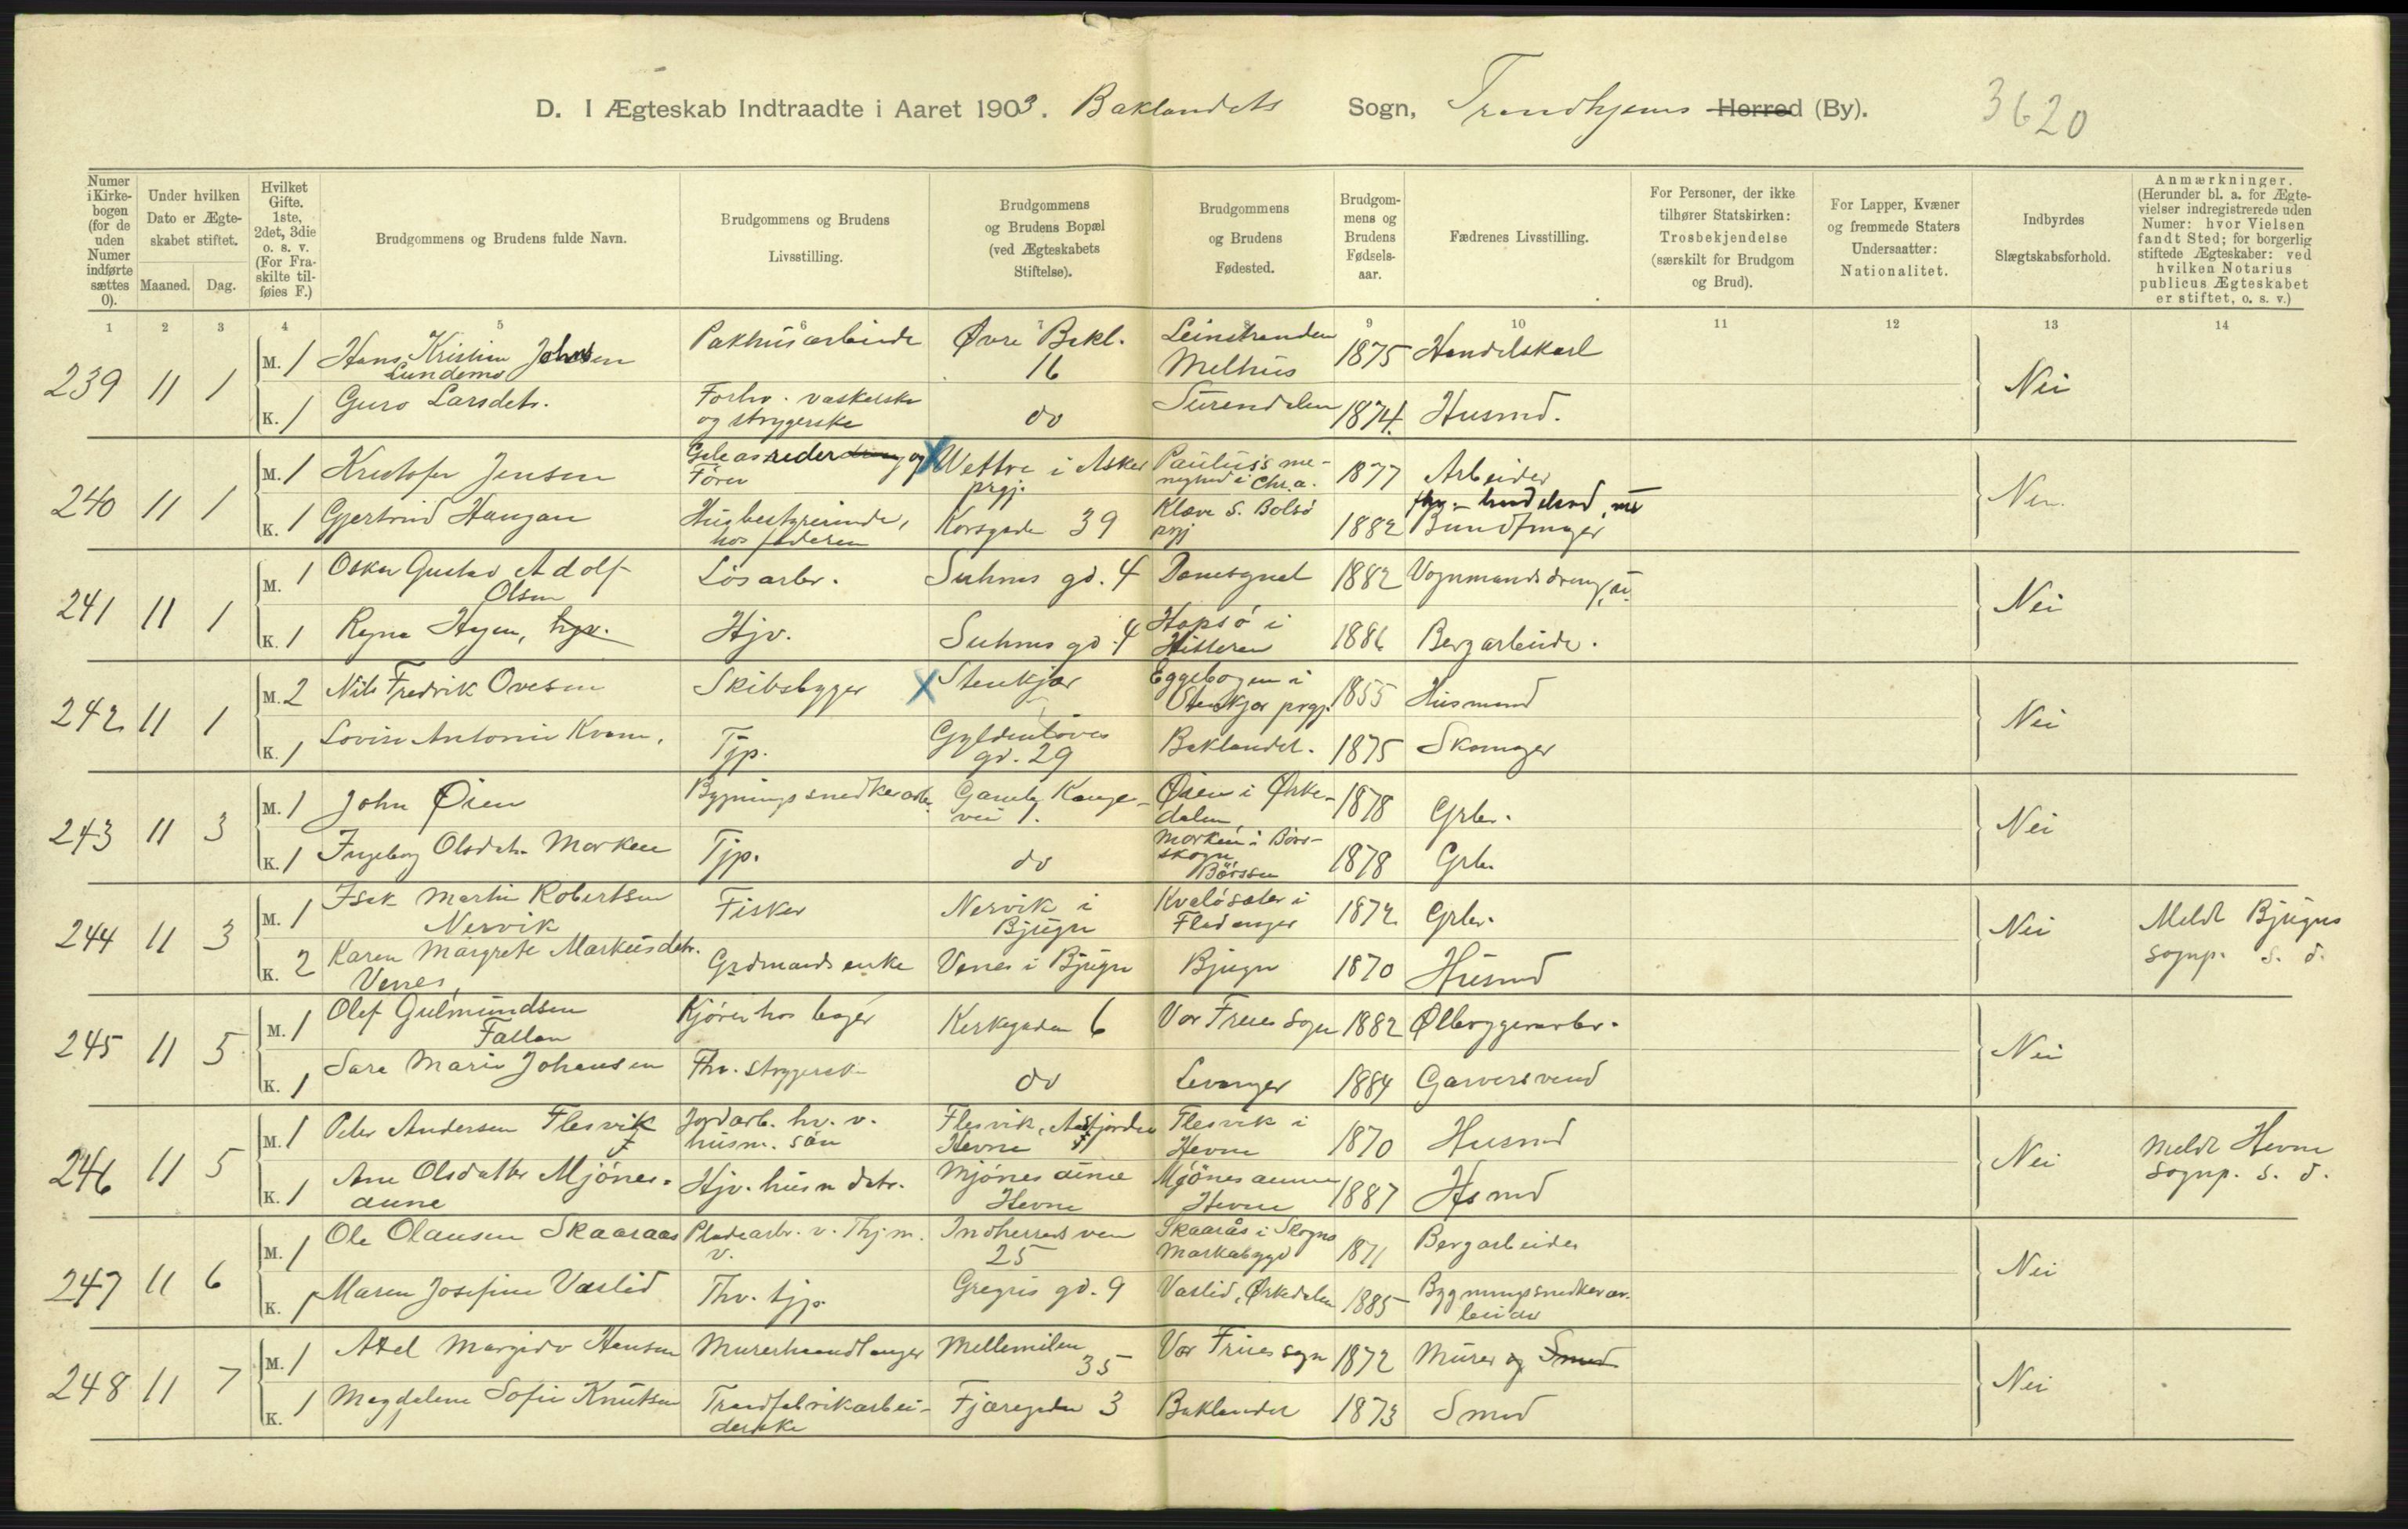 D. I Ægteskab Indtraadte i Aaret 1903. Baklandets Sogn, Trondhjems Herred (By). 3620
Numer i Kirkebogen (for de uden Numer indførte sættes 0).
Under hvilken Dato er Ægteskabet stiftet.
Maaned. Dag.
Hvilket Gifte. 1ste, 2det, 3die o. s. v. (For Fraskilte tilføies F.)
Brudgommens og Brudens fulde Navn.
Brudgommens og Brudens Livsstilling.
Brudgommens og Brudens Bopæl (ved Ægteskabets Stiftelse).
Brudgommens og Brudens Fødested.
Brudgommens og Brudens Fødselsaar.
Fædrenes Livsstilling.
For Personer, der ikke tilhører Statskirken: Trosbekjendelse (særskilt for Brudgom og Brud).
For Lapper, Kvæner og fremmede Staters Undersaatter: Nationalitet.
Indbyrdes Slægtskabsforhold.
Anmærkninger. (Herunder bl. a. for Ægtevielser indregistrerede uden Numer: hvor Vielsen fandt Sted; for borgerlig stiftede Ægteskaber: ved hvilken Notarius publicus Ægteskabet er stiftet, o. s. v.)
1 2 3 4 5 6 7 8 9 10 11 12 13 14
239 11 1 M. 1 Hans Kristian Johnsen Lundemo Pakhusarbeide Øvre Bakl. 16 Leinstranden Melhus 1875 Handelskarl Nei
K. 1 Guro Larsdetr. Forhv. vaskerske og strygerske do Surendalen 1874 Husmd.
240 11 1 M. 1 Kristofer Jensen Galeasreder og Fører Wettre i Asker prgj. Paulus's menighed i Chr.a. 1877 Arbeider Nei
K. 1 Gjertrud Haugan Husbestyrerinde, hos faderen Korsgade 39 Klæve S. Bolsö prgj 1882 Bundtmager
241 11 1 M. 1 Oskar Gustav Adolf Olsen Løsarbr. Suhms gd. 4 Domsognet 1882 Vognmandsdreng Nei
K. 1 Regna Hagen, hjv. Hjv. Suhms gd. 4 Hopsö i Hitteren 1886 Bergarbeide.
242 11 1 M. 2 Nils Fredrik Ovesen Skibsbygger Stenkjær Eggebogen i Stenkjær prgj. 1855 Husmand Nei
K. 1 Lovise Antonie Kvam, Tjp. Gyldenløves gd. 29 Baklandet. 1875 Skomager
243 11 3 M. 1 John Øien Bygningssnedkerarb. Gamle Kongevei 1. Øien i Ørkedalen, 1878 Grbr. Nei
K. 1 Ingeborg Olsdatr. Morken Tjp. do Morken i Børsskogn Börssen 1878 Grbr.
244 11 3 M. 1 Isak Martin Robertsen Nervik Fisker Nervik i Bjugn Kvalösæter i Fladanger 1872 Grbr. Nei Meldt Bjugns sognp. s. d.
K. 2 Karen Margrete Markusdatr. Venes, Grdmands enke Venes i Bjugn Bjugn 1870 Husmd
245 11 5 M. 1 Olef Gulmundsen Fallan Kjører hos bager Kirkegaden 6 Vor Frues sogn 1882 Ølbryggerarbr. Nei
K. 1 Sara Marie Johansen Fhv. strygersk. do Levanger 1884 Garversvend
246 11 5 M. 1 Peter Andersen Flesvik Jordarb. hv. v. husm. sön Flesvik, Aastfjorden Hevne Flesvik i Hevne 1870 Husmd Nei Meldt Hevne sognp. s. d.
K. 1 Ane Olsdatter Mjönesaune Hjv. husm datr. Mjönes aune Hevne Mjönesaune Hevne 1887 Hsmd
247 11 6 M. 1 Ole Olausen Skaaraas Pladearbr. v. Thjm. v. Indherredsveien 25 Skaarås i Skogns Markabygd 1871 Bergarbeider Nei
K. 1 Maren Josefine Vaslid Fhv. tjp. Gregus gd. 9 Vaslid, Ørkedalen 1885 Bygningssnedkerarbeider
248 11 7 M. 1 Axel Margido Hansen Murerhaandlanger Mellemilen 35 Vor Frues sogn 1872 Murer og Smed Nei
K. 1 Magdalene Sofie Knutsen Traadfabrikarbeiderske Fjæregaden 3 Baklandet 1873 Smed